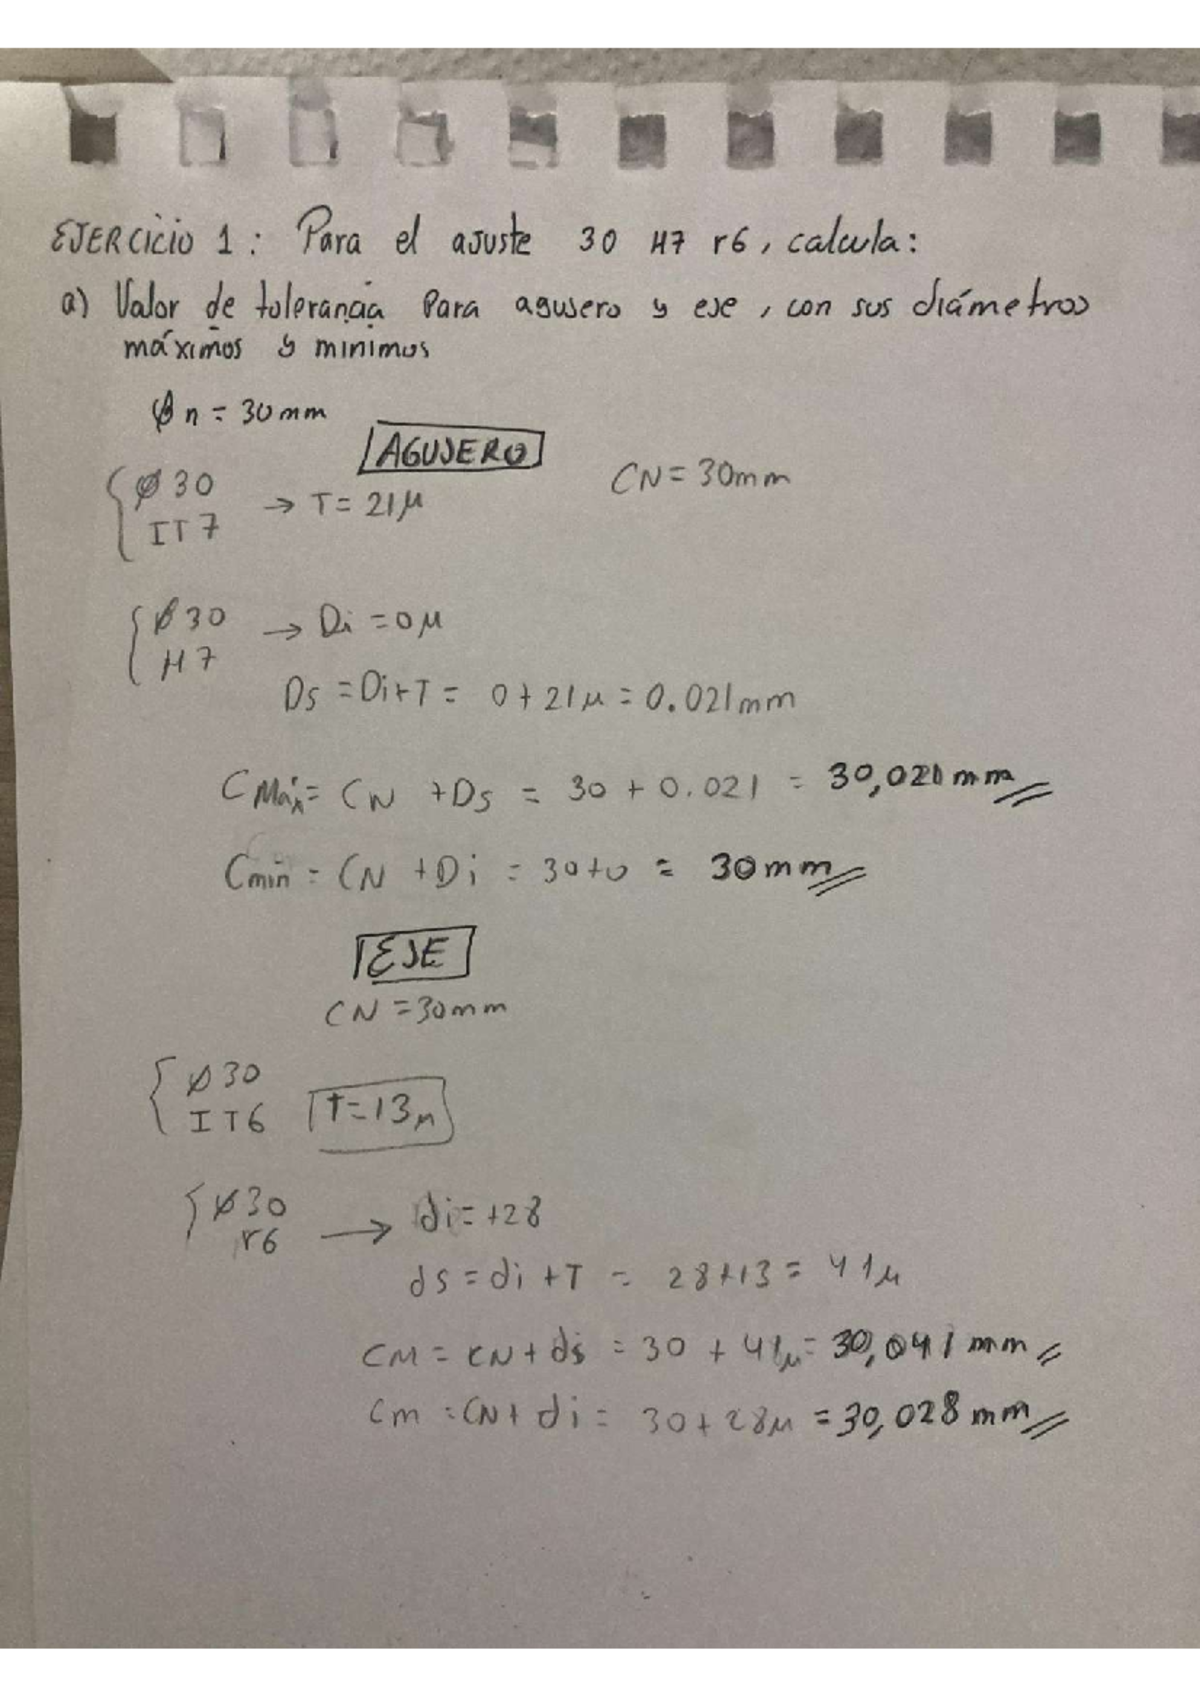 EJERCICIO 1: Para el ajuste 30 H7 r6, calcula:
a) Valor de tolerancia Para agujero y eje, con sus diámetros
máximos y minimos
Ø n = 30mm
AGUJERO
CN = 30mm
Ø30
IT7 → T = 21μ
Ø30
H7 → Di = 0μ
Ds = Di + T = 0 + 21μ = 0.021mm
CMáx = CN + Ds = 30 + 0.021 = 30,021mm
Cmin = CN + Di = 30+0 = 30mm
EJE
CN = 30mm
Ø30
IT6 T=13μ
Ø30
r6 → di = +28
ds = di + T = 28+13 = 41μ
CM = CN + ds = 30 + 41μ = 30,041mm
Cm = CN + di = 30 + 28μ = 30,028mm